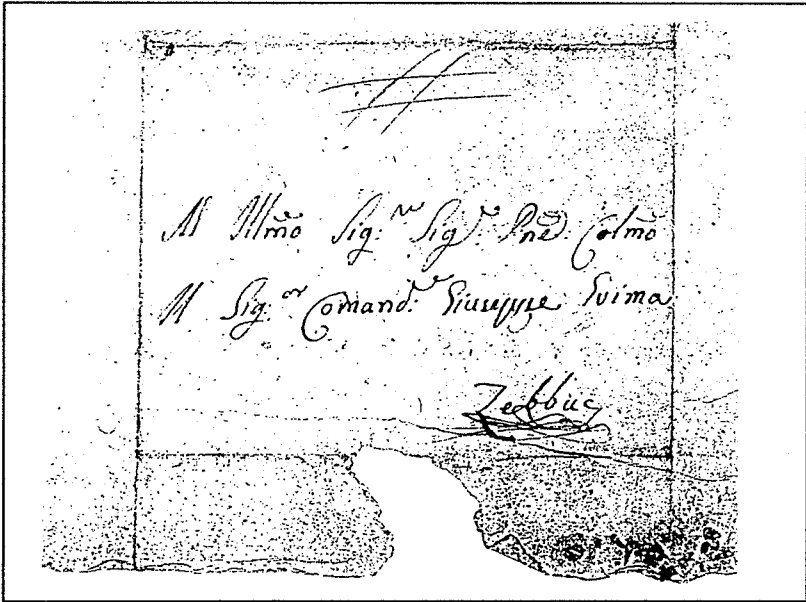 All Illmo Sig.re Sig.re Pne Colmo
Il Sig.or Comand.re Giuseppe Grima
Zebbug